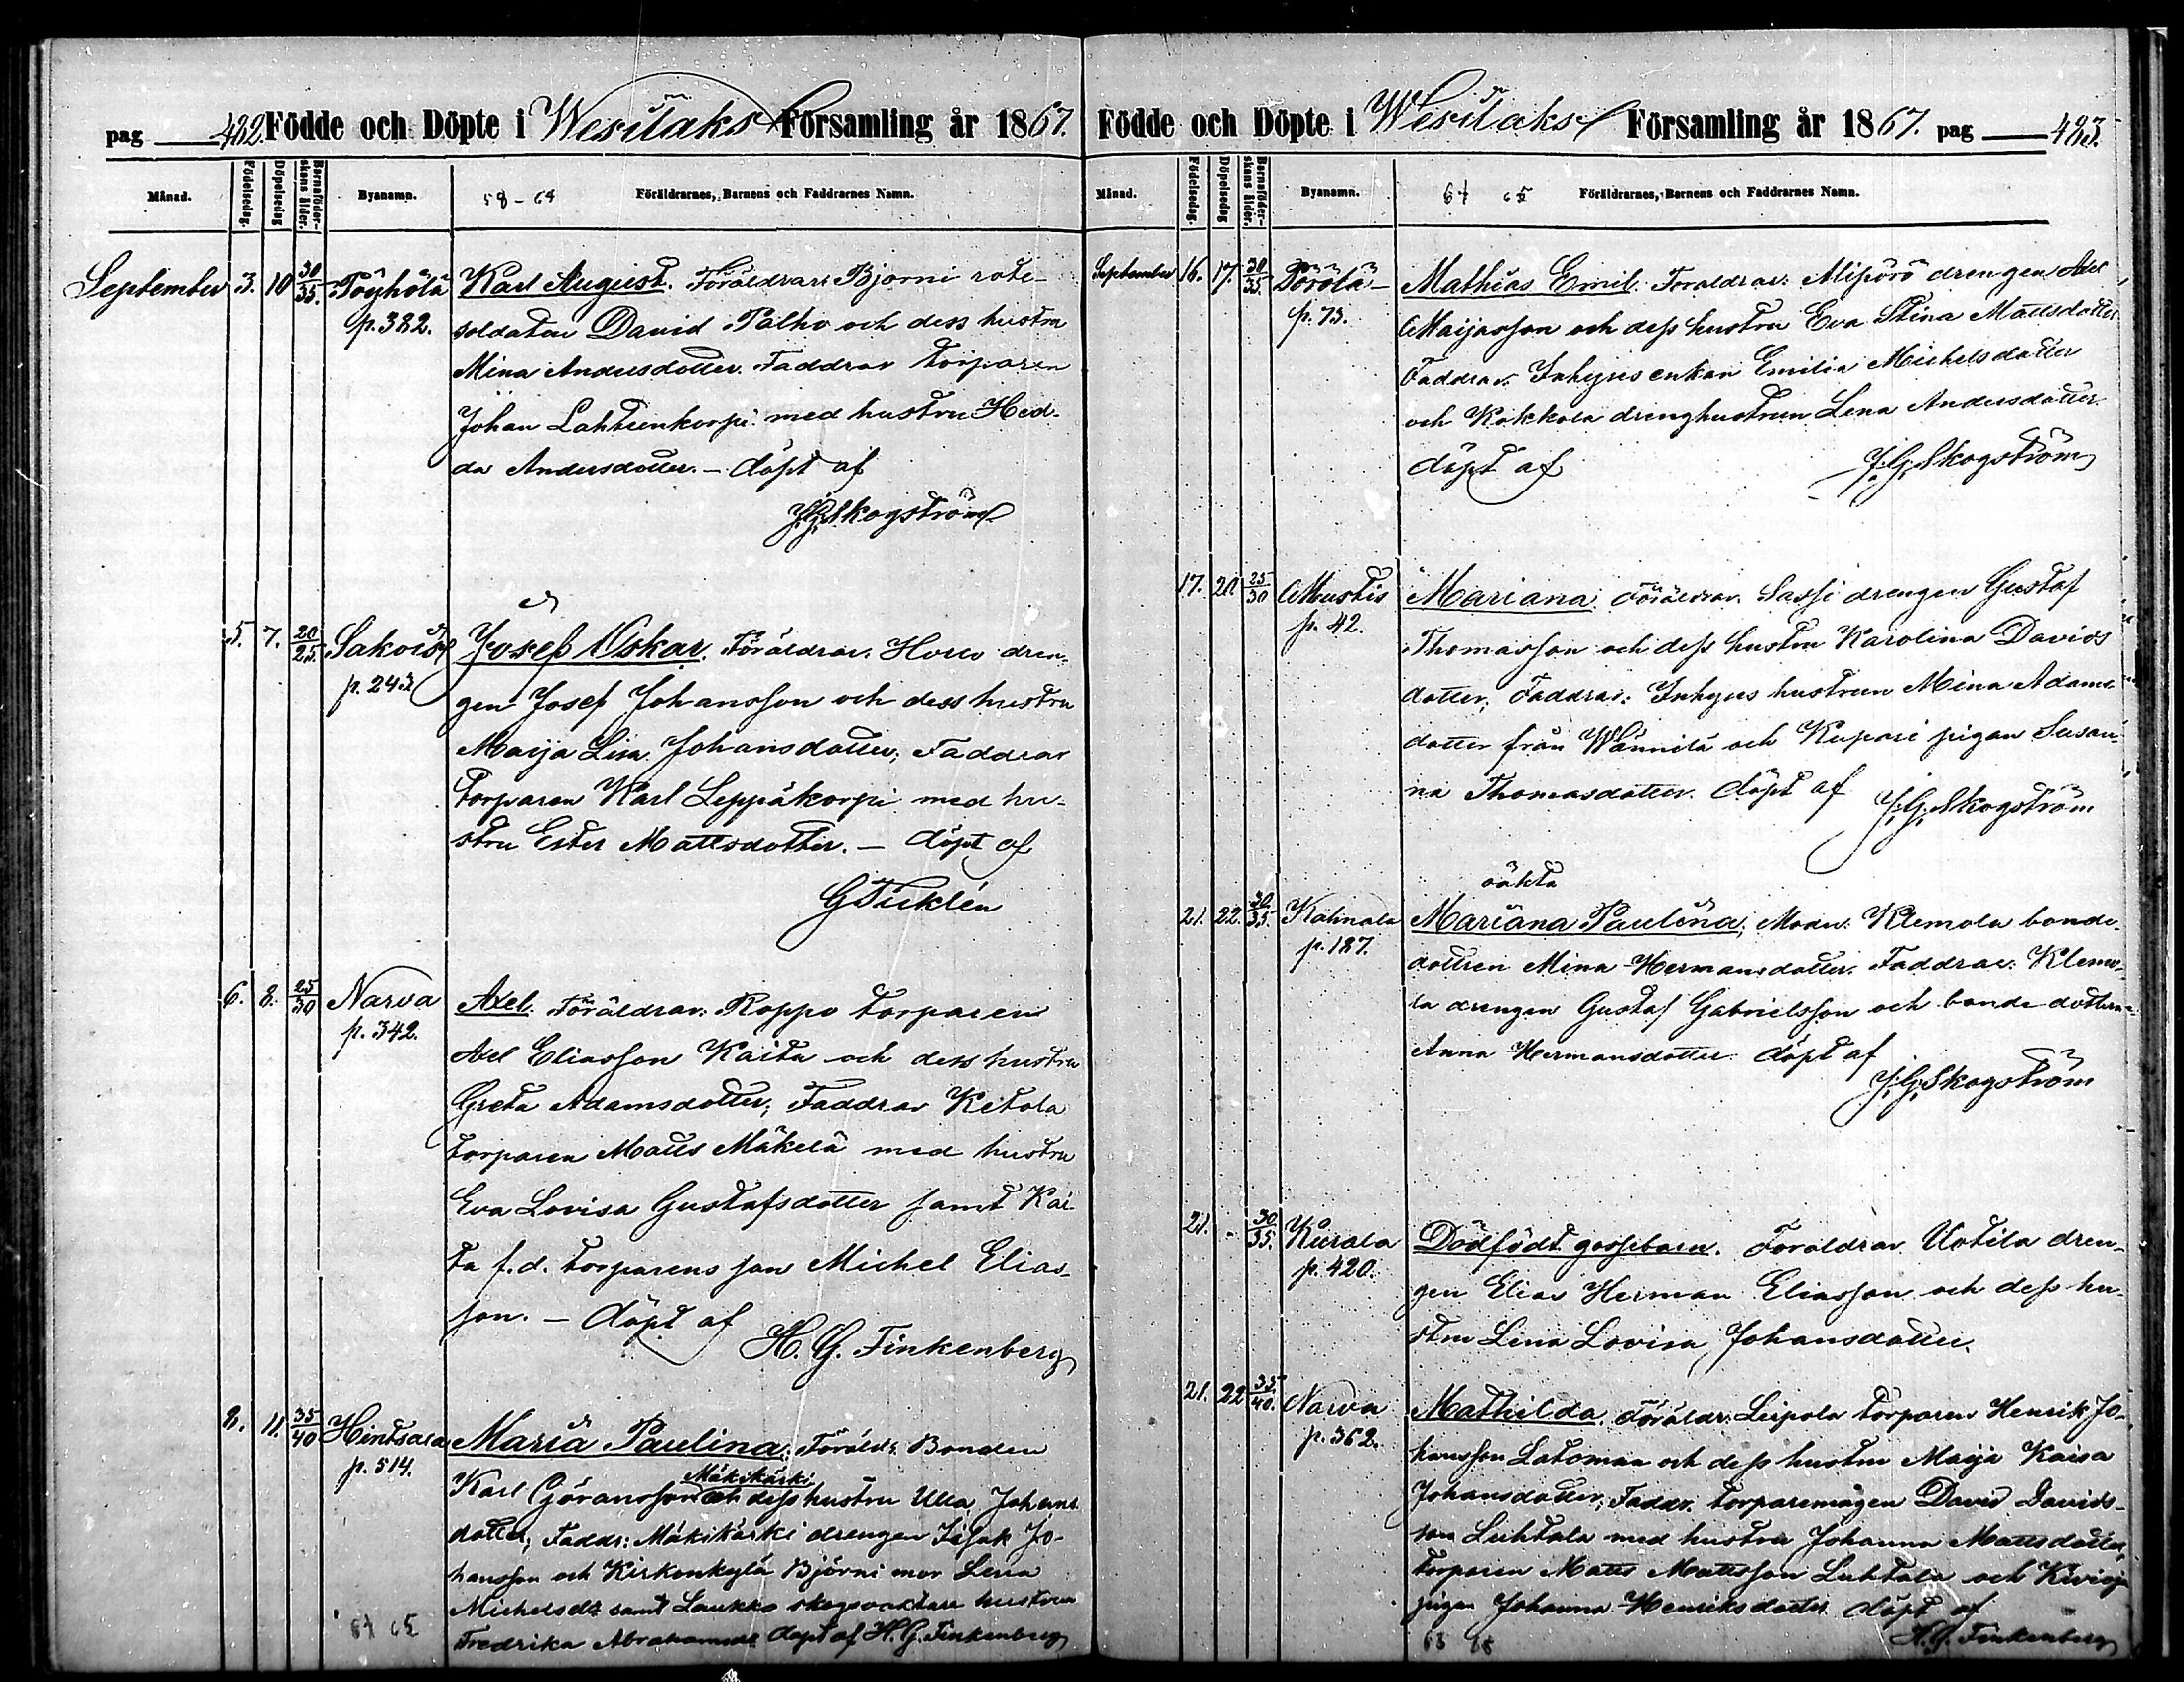 pag 482. Födde och Döpte i Wesilaks Församling år 1867.
Månad. Födelsedag. Döpelsedag Barnaföderskans ålder. Byanamn. 58-64 Föräldrarnes, Barnens och Faddrarnes Namn.
September 3. 10 30/35. Töyhölä Karl August. Föräldrar: Bjorni rote-
p. 382. soldaten David Palho och dess hustru
Mina Andersdotter. Faddrar torparen
Johan Lahtienkorpi med hustru Hed-
da Andersdotter. – döpt af
J.G. Skogström
5. 7. 20/25. Sakois Josef Oskar. Föräldrar: dren-
p. 243 gen Josef Johansson och dess hustru
Maija Lisa Johansdotter; Faddrar
torparen Karl Leppäkorpi med hu-
stru Ester Mattsdotter. – döpt af
6. 8. 25/30 Narva Axel. Föräldrar: Roppo torparen
p. 342. Axel Eliasson Kaita och dess hustru
Greta Adamsdotter; Faddrar Ketola
torparen Matts Mäkelä med hustru
Eva Lovisa Gustafsdotter samt Kai-
ta f.d. torparens son Michel Elias-
son. – döpt af
H. G. Finkenberg
8. 11. 35/40 Hintsara Maria Paulina. Föräldr: Bonden
p. 514. Karl Göransson Mäkikärki och dess hustru Ulla Johans-
dotter; Faddr: Mäkikärki drengen Isak Jo-
hansson och Kirkonkylä Björni mor Lena
Michelsdr samt Laukko skogsvaktare hustrun
Fredrika Abrahamsdr döpt af H. G. Finkenberg
67 65
Födde och Döpte i Wesilaks Församling år 1867. pag 483.
Månad. Födelsedag. Döpelsedag Barnaföderskans ålder. Byanamn. 67 65 Föräldrarnes, Barnens och Faddrarnes Namn.
September 16. 17. 30/35. Pörölä Mathias Emil. Föräldrar: Alipörö drengen Axel
p. 73. Maijasson och dess hustru Eva Stina Mattsdotter
Faddrar: Inhyses enkan Emilia Michelsdotter
och Kokkola drenghustrun Lena Andersdotter.
döpt af J.G. Skogström
17. 20 25/30 Mustis Mariana. Föräldrar. Sassi drengen Gustaf
p. 42. Thomasson och dess hustru Karolina Davids
dotter; Faddrar: Inhyses hustrun Mina Adams-
dotter från Wännilä och Kupari pigan Susan-
na Thomasdotter. döpt af J.G. Skogström
oäkta
21. 22. 30/35. Kalmala Mariana Paulina; Modr: Klemola bonde-
p. 187. dottren Mina Hermansdotter. Faddrar: Klemo-
la drengen Gustaf Gabrielsson och bonde dottren
Anna Hermansdotter. döpt af
J.G. Skogström
21. - 30/35. Kurala Dödfödt gossebarn. Föräldrar Uotila dren-
p. 420. gen Elias Herman Eliasson och dess hu-
stru Lena Lovisa Johansdotter.
21. 22 35/40. Narva Mathilda. Föräldr: Leipola torparen Henrik Jo-
p. 362. hansson Latomaa och dess hustru Maija Kaisa
Johansdotter; Faddr. torparemågen David Davids-
son Luhtala med hustru Johanna Mattsdotter,
torparen Matts Mattsson Luhtala och
pigan Johanna Henriksdotter döpt af
H. G. Finkenberg